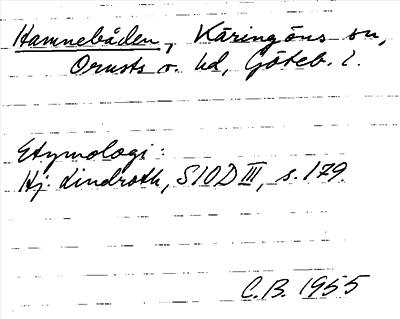 Hamnebåden, Käringöns sn,
Orusts v. hd, Göteb. l.
Etymologi:
Hj. Lindroth, SIOD III, s. 179.
C.B. 1955